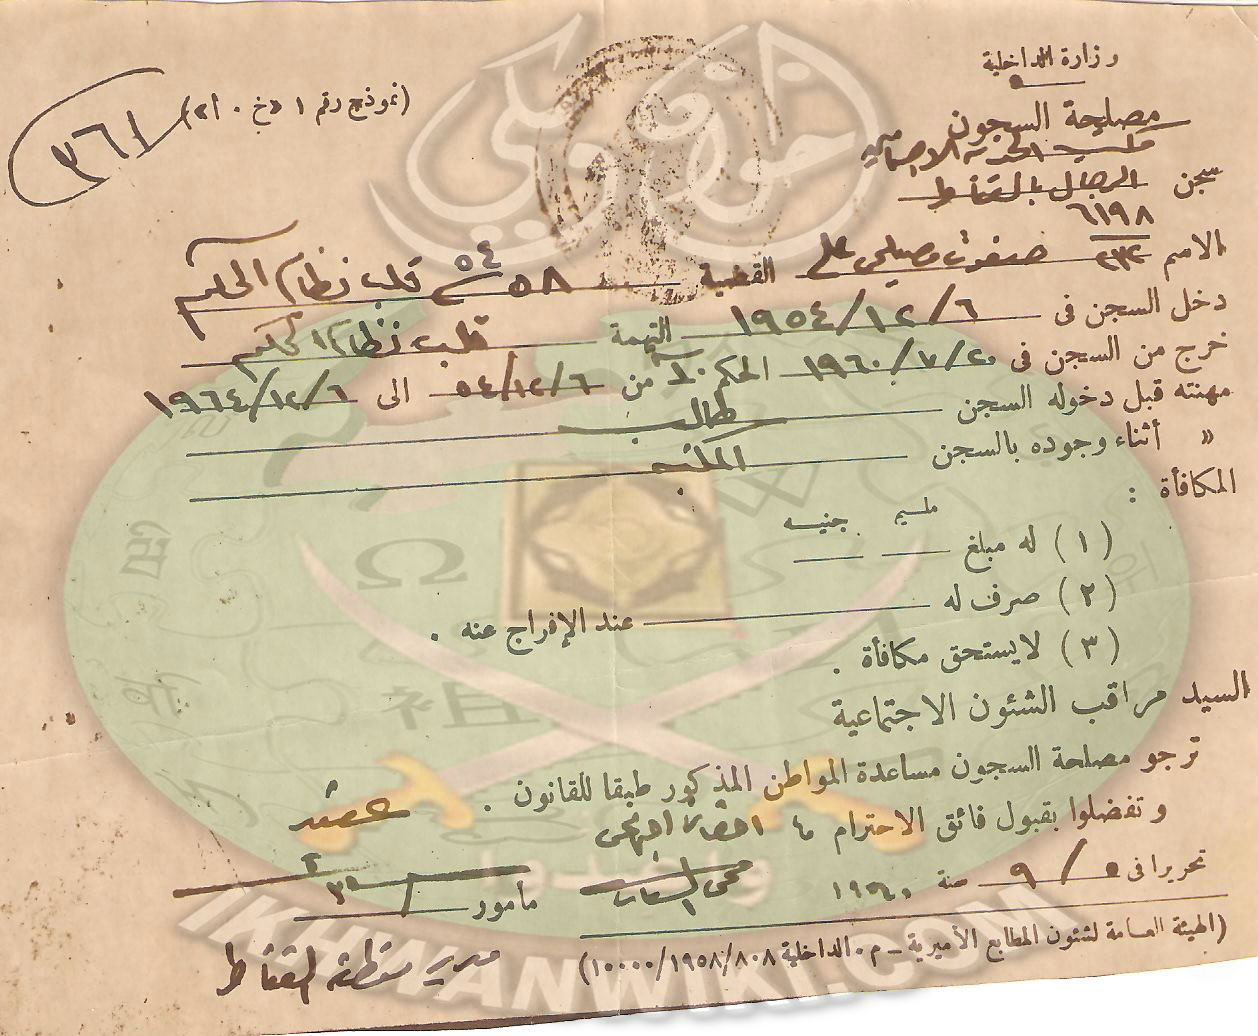 وزارة الداخلية
مصلحة السجون
مكتب الخدمة الاجتماعية
سجن الرجال بالقناطر
(نموذج رقم ١ «خ٠أ٢»)
٣٦١
٦١٩٨
الاسم صفوت مصيلحى على القضية ٥٨ ٥٤ قلب نظام الحكم
دخل السجن فى ١٩٥٤/١٢/٦ التهمة قلب نظام الحكم
خرج من السجن فى ١٩٦٠/٧/٢٠ الحكم من ٥٤/١٢/٦ الى ١٩٦٤/١٢/٦
مهنته قبل دخوله السجن طالب
» أثناء وجوده بالسجن المكتبة
المكافأة :
مليم جنيه
(١) له مبلغ
(٢) صرف له عند الإفراج عنه .
(٣) لايستحق مكافأة .
السيد مراقب الشئون الاجتماعية
ترجو مصلحة السجون مساعدة المواطن المذكور طبقا للقانون .
وتفضلوا بقبول فائق الاحترام ،
تحريرا فى ٥/٩ سنة ١٩٦٠
مأمور
مدير منطقة القناطر
(الهيئة العامة لشئون المطابع الأميرية ــ م٠الداخلية ١٠٠٠٠/١٩٥٨/٨٠٨)
إخوان ويكي
وأعدوا
IKHWANWIKI.COM